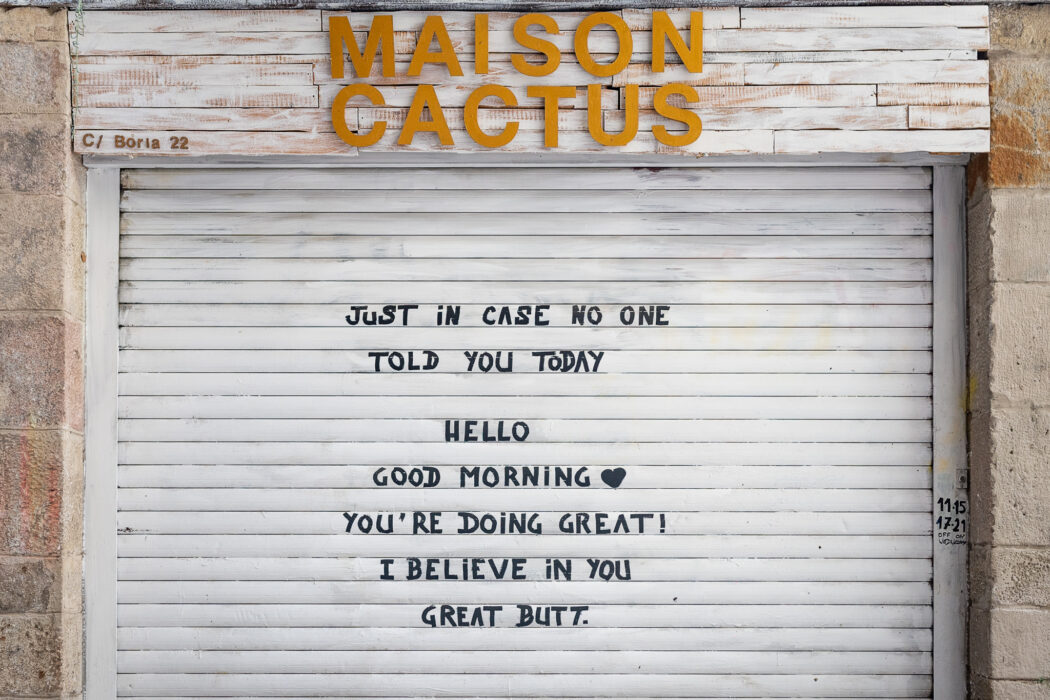 MAISON
CACTUS
C/ Boria 22
JUST iN CASE NO ONE
TOLD YOU TODAY
HELLO
GOOD MORNiNG ♥
YOU'RE DOiNG GREAT!
I BELiEVE iN YOU
GREAT BUTT.
11·15
17·21
OFF ON